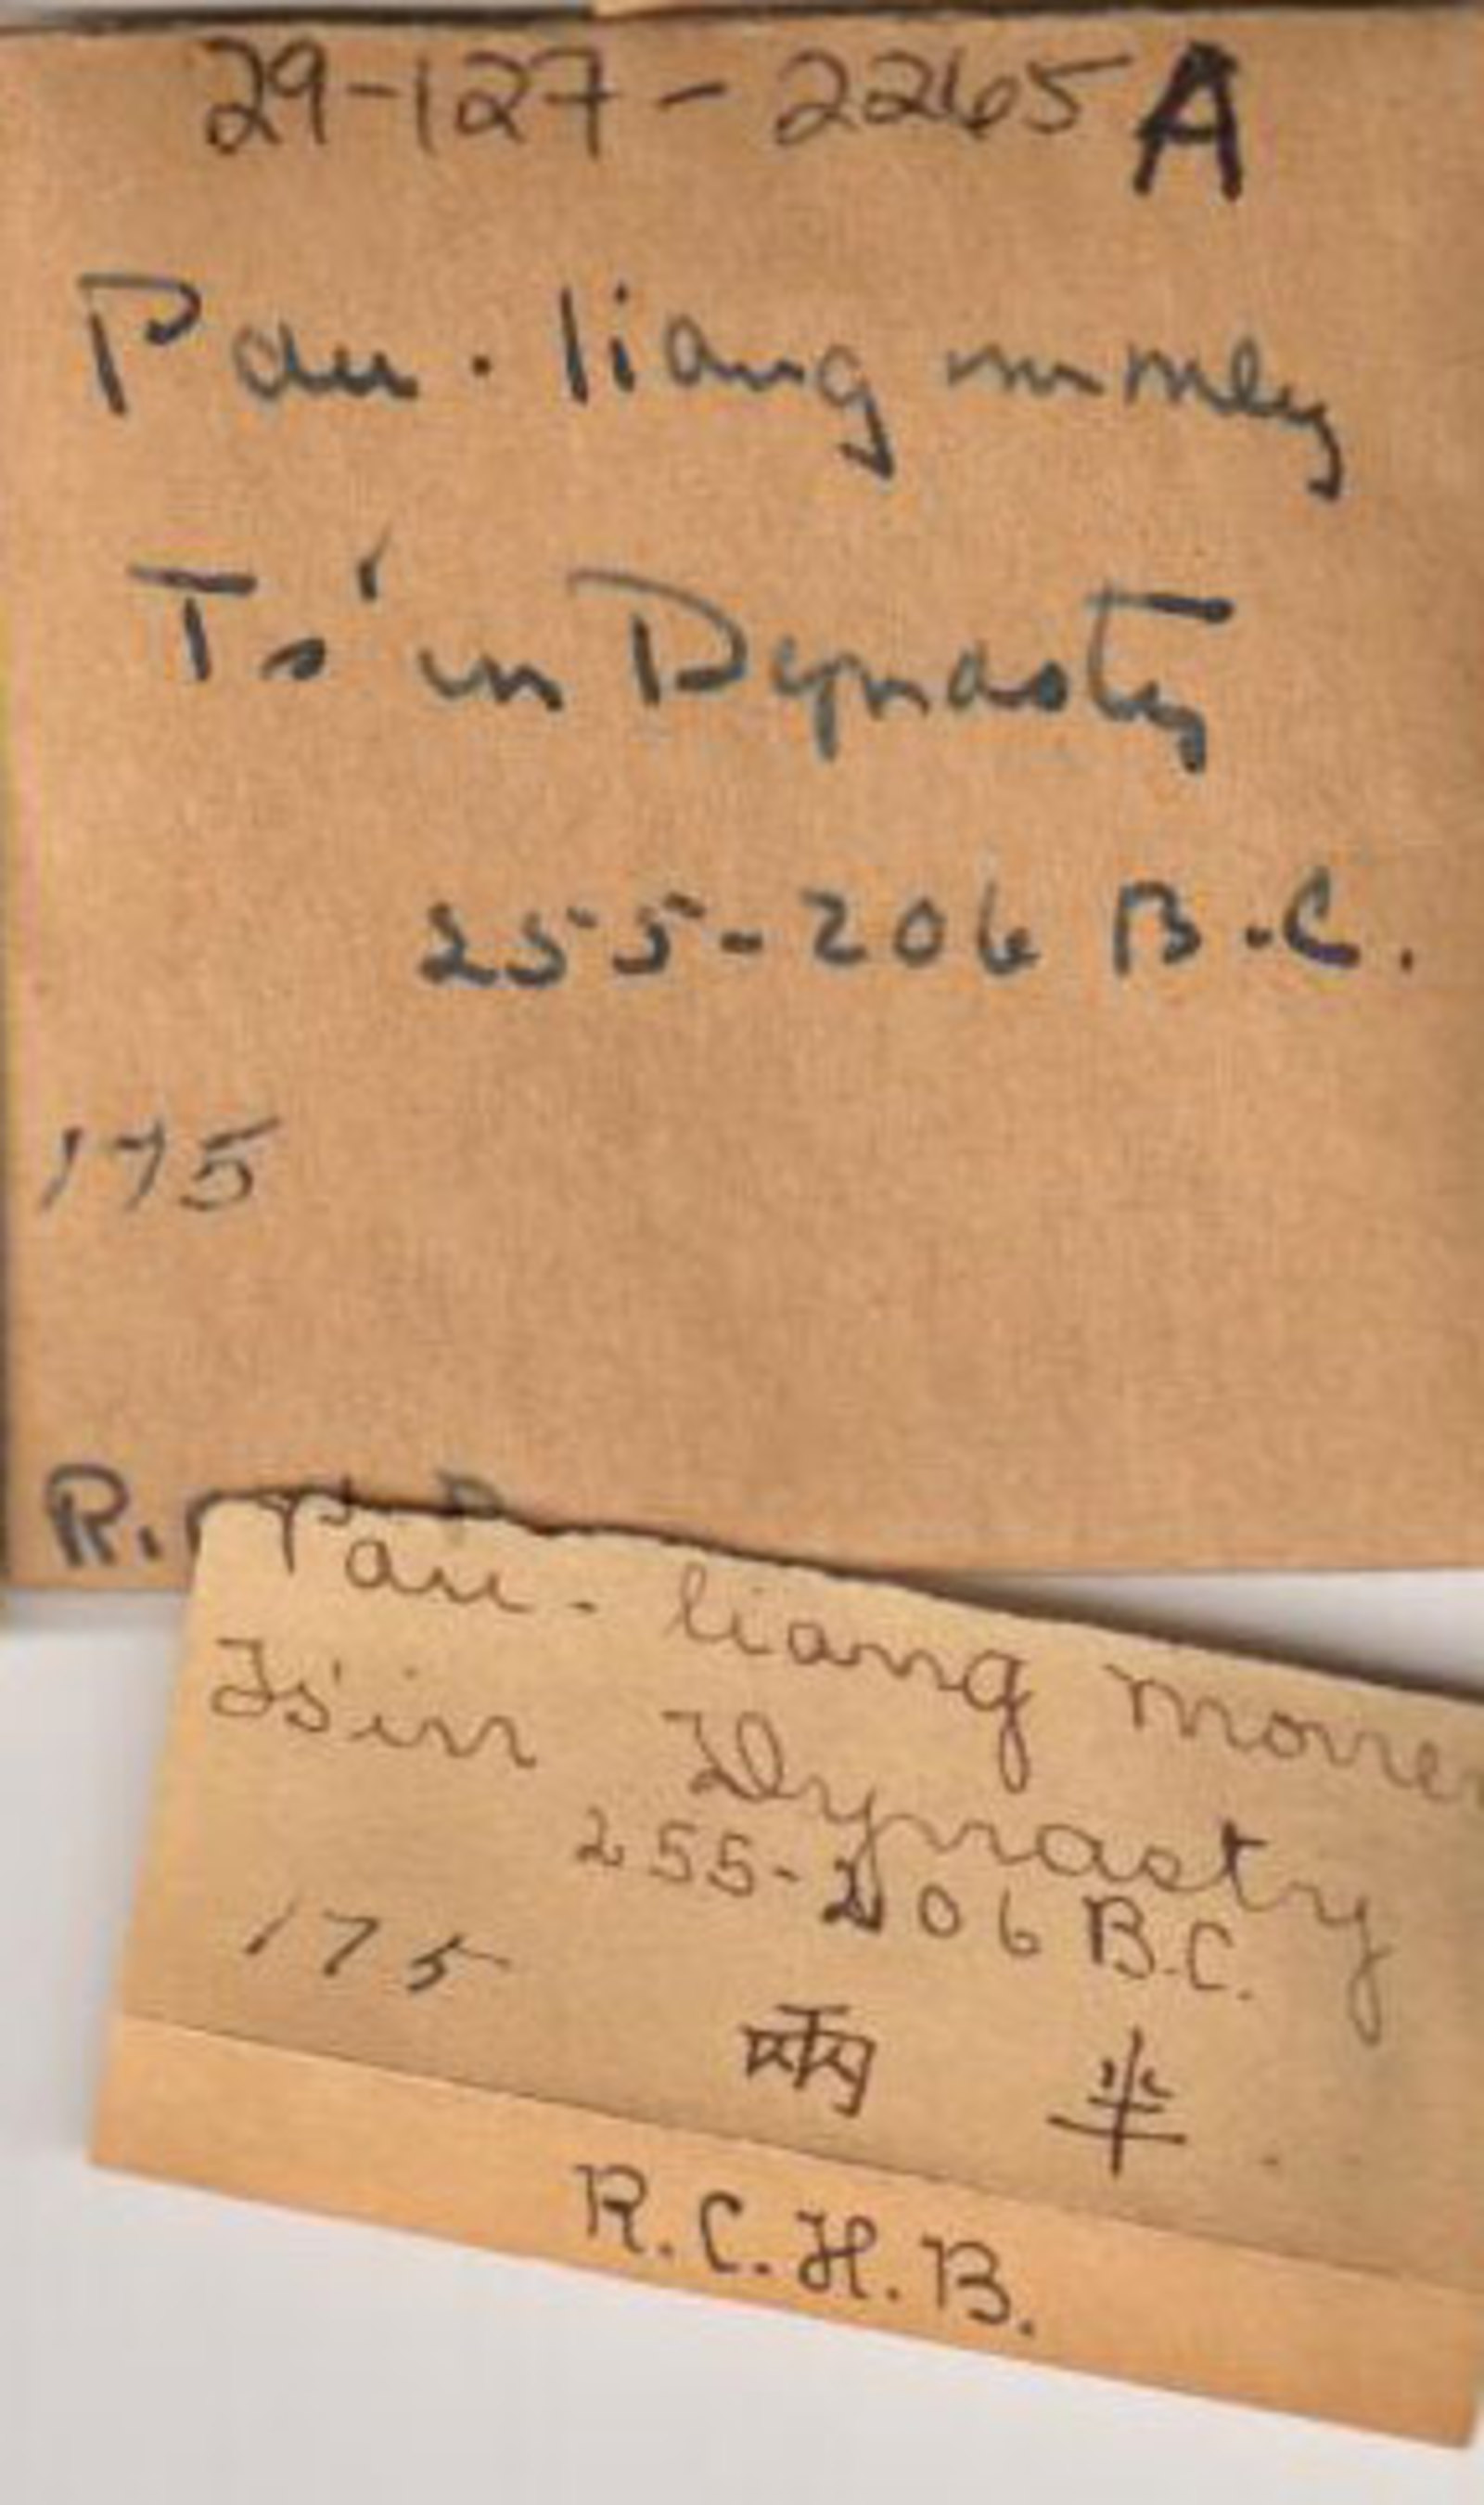 29-127-2265A
Pau-liang money
Ts'in Dynasty
255-206 B.C.
175
R.
Pau-liang mone
Ts'in Dynasty
255-206 B.C.
175
兩 半
R.C.H.B.